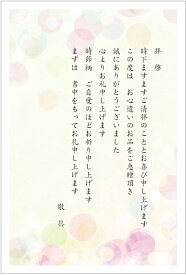 拝啓
時下ますますご清祥のこととお喜び申し上げます
この度は お心遣いのお品をご恵贈頂き
誠にありがとうございました
心よりお礼申し上げます
時節柄 ご自愛のほどお祈り申し上げます
まずは 書中をもってお礼申し上げます
敬具